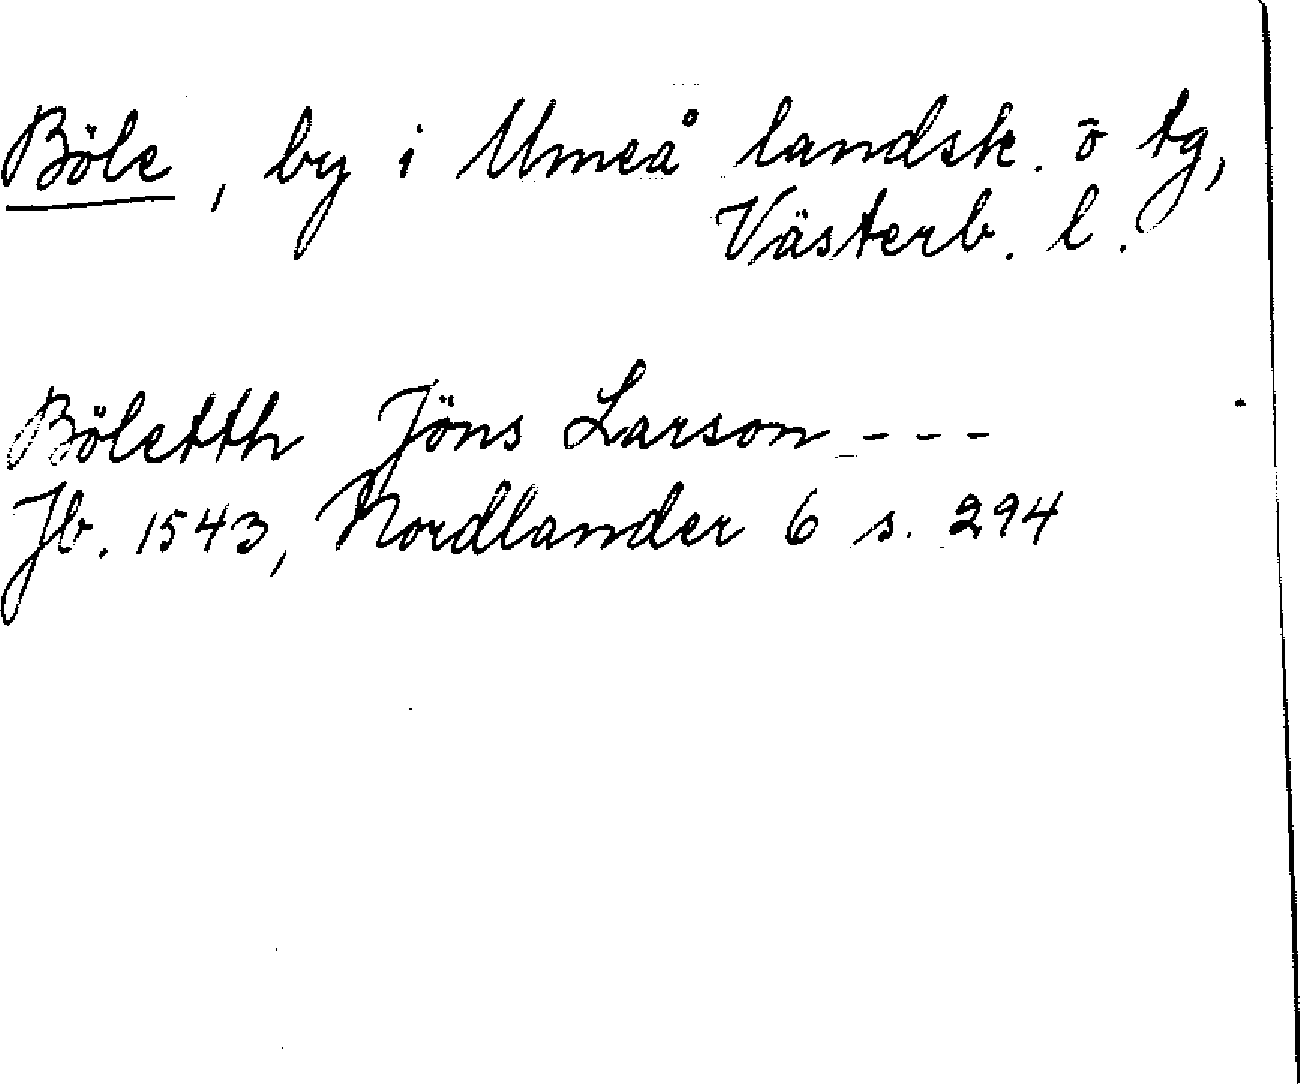 Böle, by i Umeå landsk. ö tg,
Västerb. l.
Böletth Jöns Larson - - -
Jb. 1543, Nordlander 6 s. 294